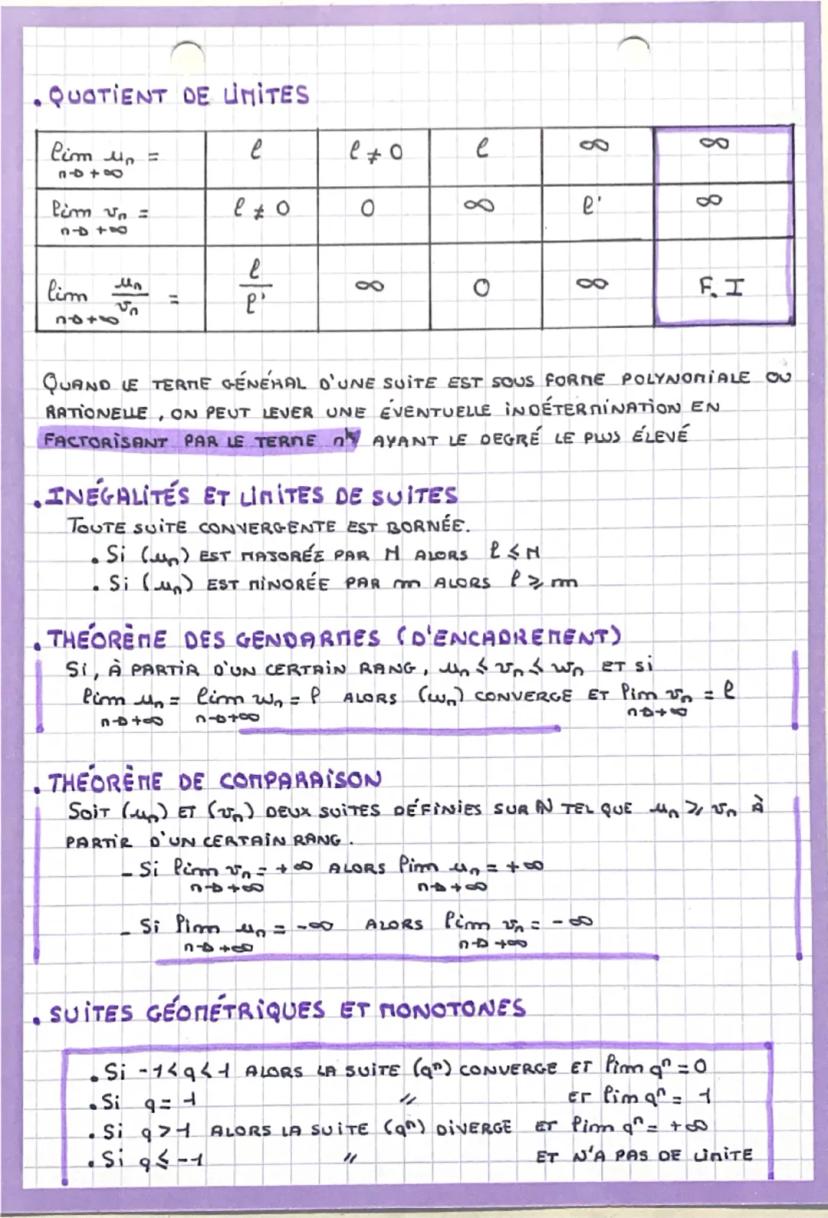 . QUOTIENT DE LIMITES
lim uₙ = ℓ ℓ ≠ 0 ℓ ∞ ∞
n→+∞
lim vₙ = ℓ ≠ 0 0 ∞ ℓ' ∞
n→+∞
lim uₙ/vₙ = ℓ/ℓ' ∞ 0 ∞ F.I
n→+∞
QUAND LE TERME GÉNÉRAL D'UNE SUITE EST SOUS FORME POLYNOMIALE OU
RATIONELLE, ON PEUT LEVER UNE ÉVENTUELLE INDÉTERMINATION EN
FACTORISANT PAR LE TERME nᵏ AYANT LE DEGRÉ LE PLUS ÉLEVÉ
. INÉGALITÉS ET LIMITES DE SUITES
TOUTE SUITE CONVERGENTE EST BORNÉE.
. Si (uₙ) EST MAJORÉE PAR M ALORS ℓ ⩽ M
. Si (uₙ) EST MINORÉE PAR m ALORS ℓ ⩾ m
. THÉORÈME DES GENDARMES (D'ENCADREMENT)
Si, À PARTIR D'UN CERTAIN RANG, uₙ ⩽ vₙ ⩽ wₙ ET Si
lim uₙ = lim wₙ = ℓ ALORS (wₙ) CONVERGE ET lim vₙ = ℓ
n→+∞ n→+∞ n→+∞
. THÉORÈME DE COMPARAISON
SOIT (uₙ) ET (vₙ) DEUX SUITES DÉFINIES SUR ℕ TEL QUE uₙ ⩾ vₙ À
PARTIR D'UN CERTAIN RANG.
- Si lim vₙ = +∞ ALORS lim uₙ = +∞
n→+∞ n→+∞
- Si lim uₙ = -∞ ALORS lim vₙ = -∞
n→+∞ n→+∞
. SUITES GÉOMÉTRIQUES ET MONOTONES
. Si -1<q<1 ALORS LA SUITE (qⁿ) CONVERGE ET lim qⁿ = 0
. Si q = 1 " ET lim qⁿ = 1
. Si q > 1 ALORS LA SUITE (qⁿ) DIVERGE ET lim qⁿ = +∞
. Si q ⩽ -1 " ET N'A PAS DE LIMITE